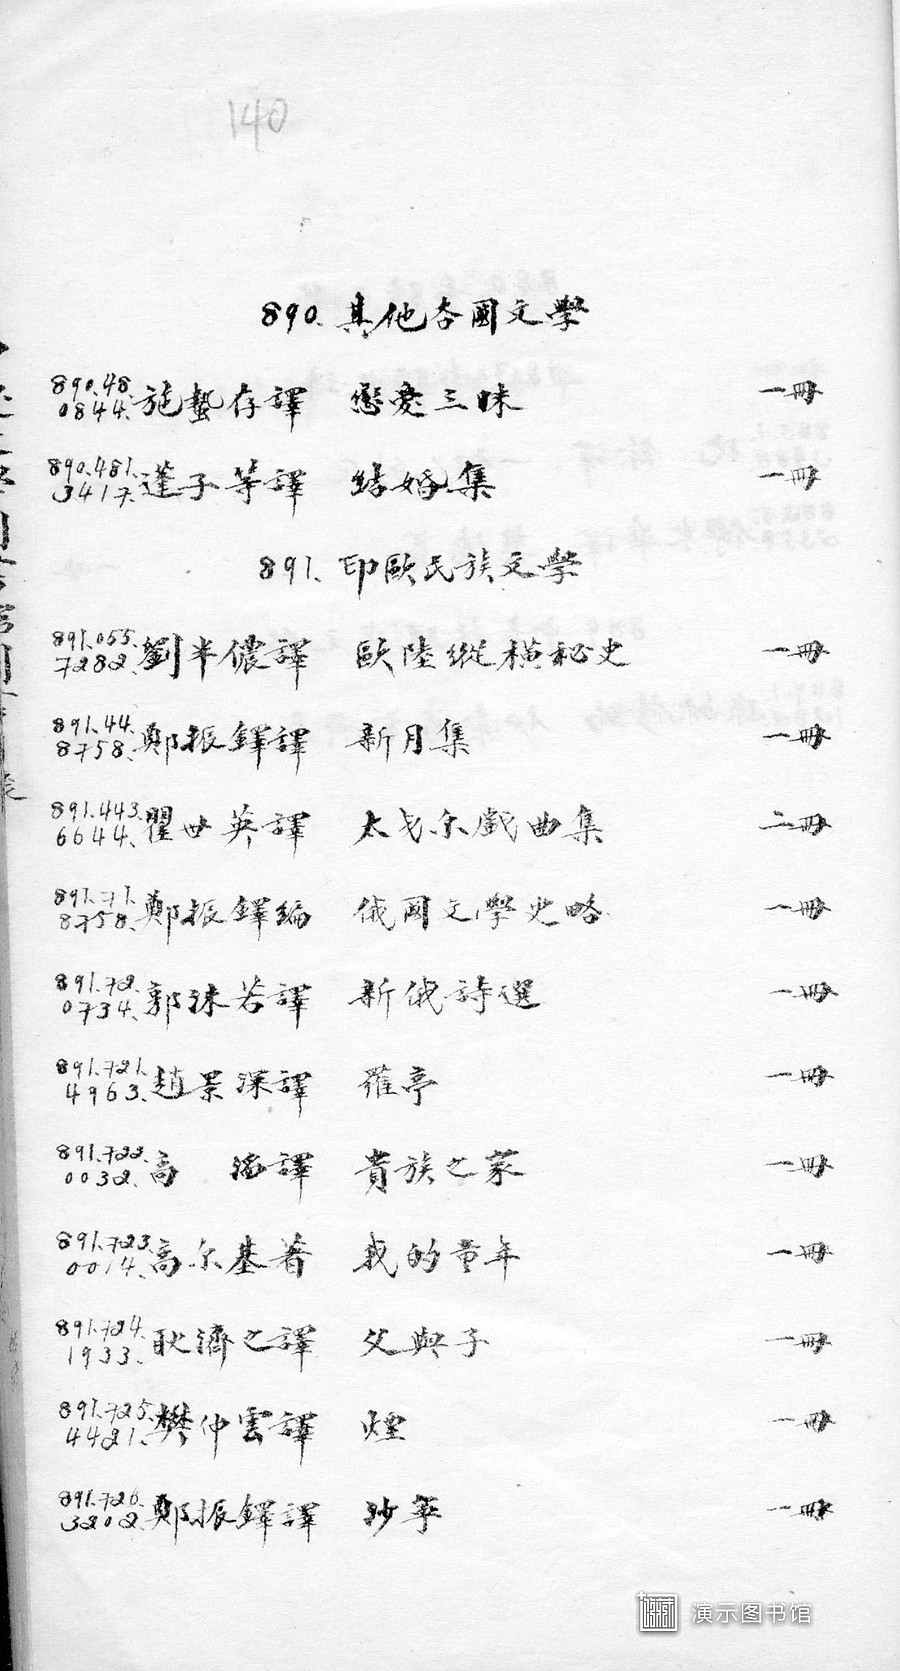 140
890. 其他各國文學
890.48. 0844. 施蟄存譯 戀愛三昧 一冊
890.481. 3417. 蓬子等譯 結婚集 一冊
891. 印歐民族文學
891.055. 7282. 劉半儂譯 歐陸縱橫秘史 一冊
891.44. 8758. 鄭振鐸譯 新月集 一冊
891.443. 6644. 瞿世英譯 太戈尔戲曲集 二冊
891.71. 8758. 鄭振鐸編 俄國文學史略 一冊
891.72. 0734. 郭沫若譯 新俄詩選 一冊
891.721. 4963. 趙景深譯 羅亭 一冊
891.722. 0032. 高滔譯 貴族之家 一冊
891.723. 0014. 高尔基著 我的童年 一冊
891.724. 1933. 耿濟之譯 父與子 一冊
891.725. 4421. 樊仲雲譯 煙 一冊
891.726. 3202. 鄭振鐸譯 沙寧 一冊
演示图书馆